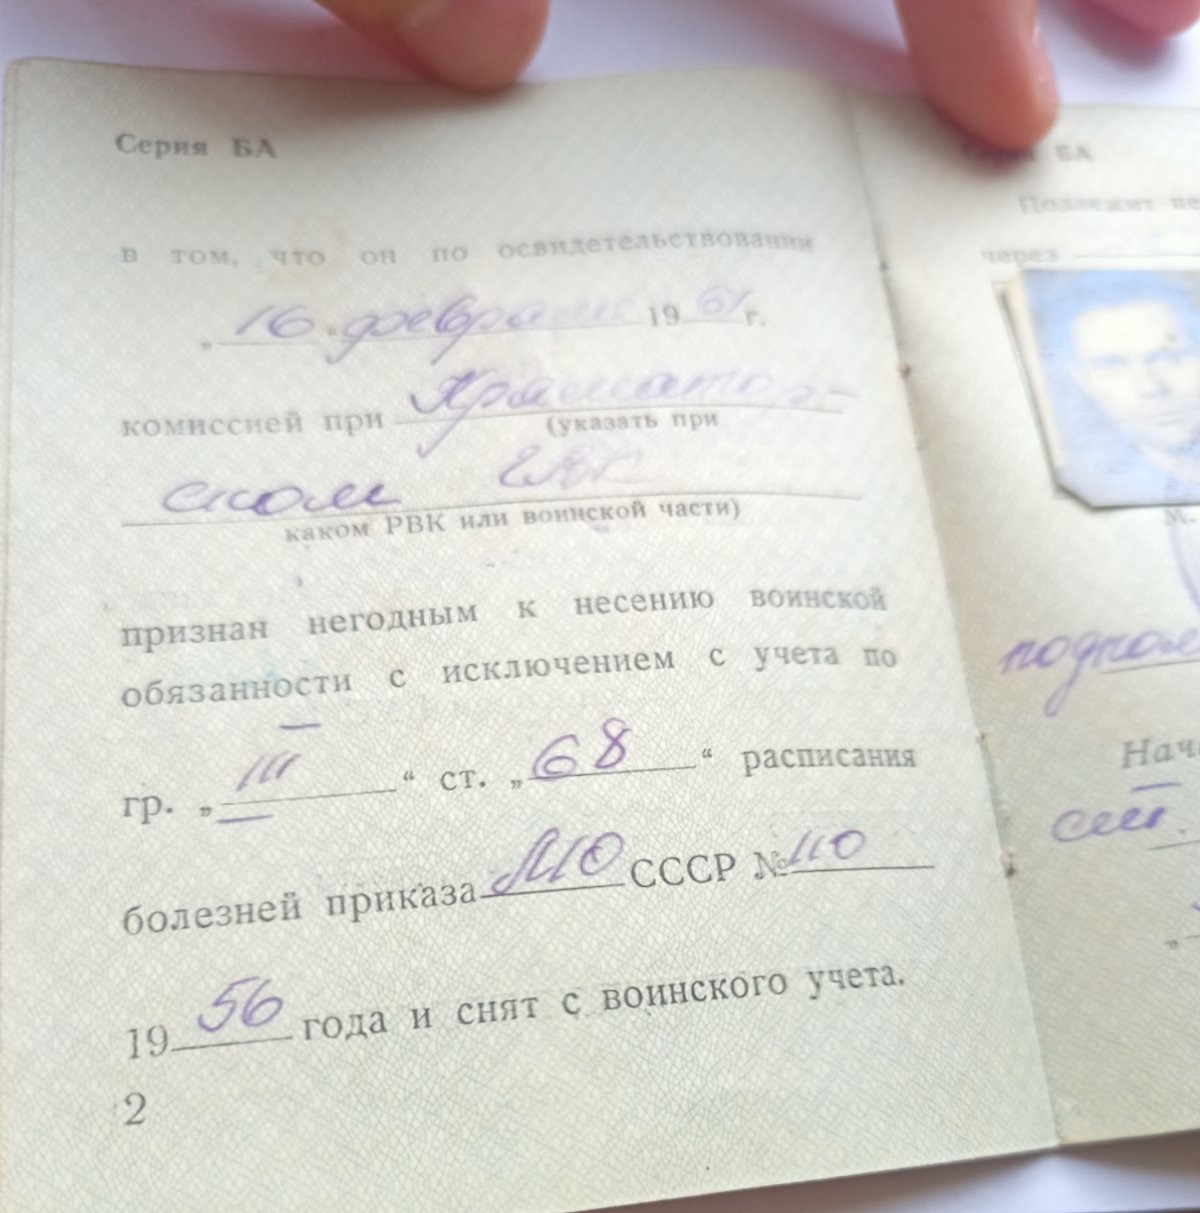 Серия БА
в том, что он по освидетельствовании
„ 16 “ февраля 19 61 г.
комиссией при Краматор-
(указать при
ском ГВК
каком РВК или воинской части)
признан негодным к несению воинской
обязанности с исключением с учета по
гр. „ III “ ст. „ 68 “ расписания
болезней приказа МО СССР № 110
19 56 года и снят с воинского учета.
2
БА
Подлежит пе
через
М.
подпол
Нач
„